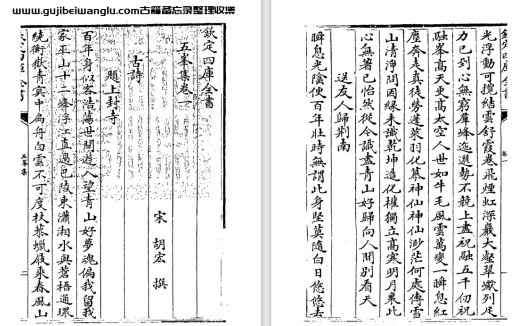 www.gujibeiwanglu.com古籍备忘录整理收集
欽定四庫全書
五峯集卷一
宋 胡宏 撰
古詩
題上封寺
百年身似客浩蕩世間遊入望青山好夢魂偏我留我
家巫山十二峰浮江直過巴陵東瀟湘水與蒼梧通環
繞衡嶽青冥中扁舟白雲不可度扶藜蠟屐乘春風山
欽定四庫全書
五峯集
光浮動可攬結雲舒霞卷飛煙虹深巖大壑翠獻列足
力已到心無窮羣峰迤邐勢不競上盡祝融五千仞祝
融峯高天更高太空人世如牛毛風雲萬變一瞬息紅
塵奔走真徒勞蓬萊羽化慕神仙神仙渺茫何處傳雲
山清淨間因緣未識乾坤造化權獨立高寒明月東此
心無著已怡然從今識盡青山好歸向人間別看天
送友人歸荆南
瞬息光陰便百年壯時無謂此身堅莫隨白日悠悠去